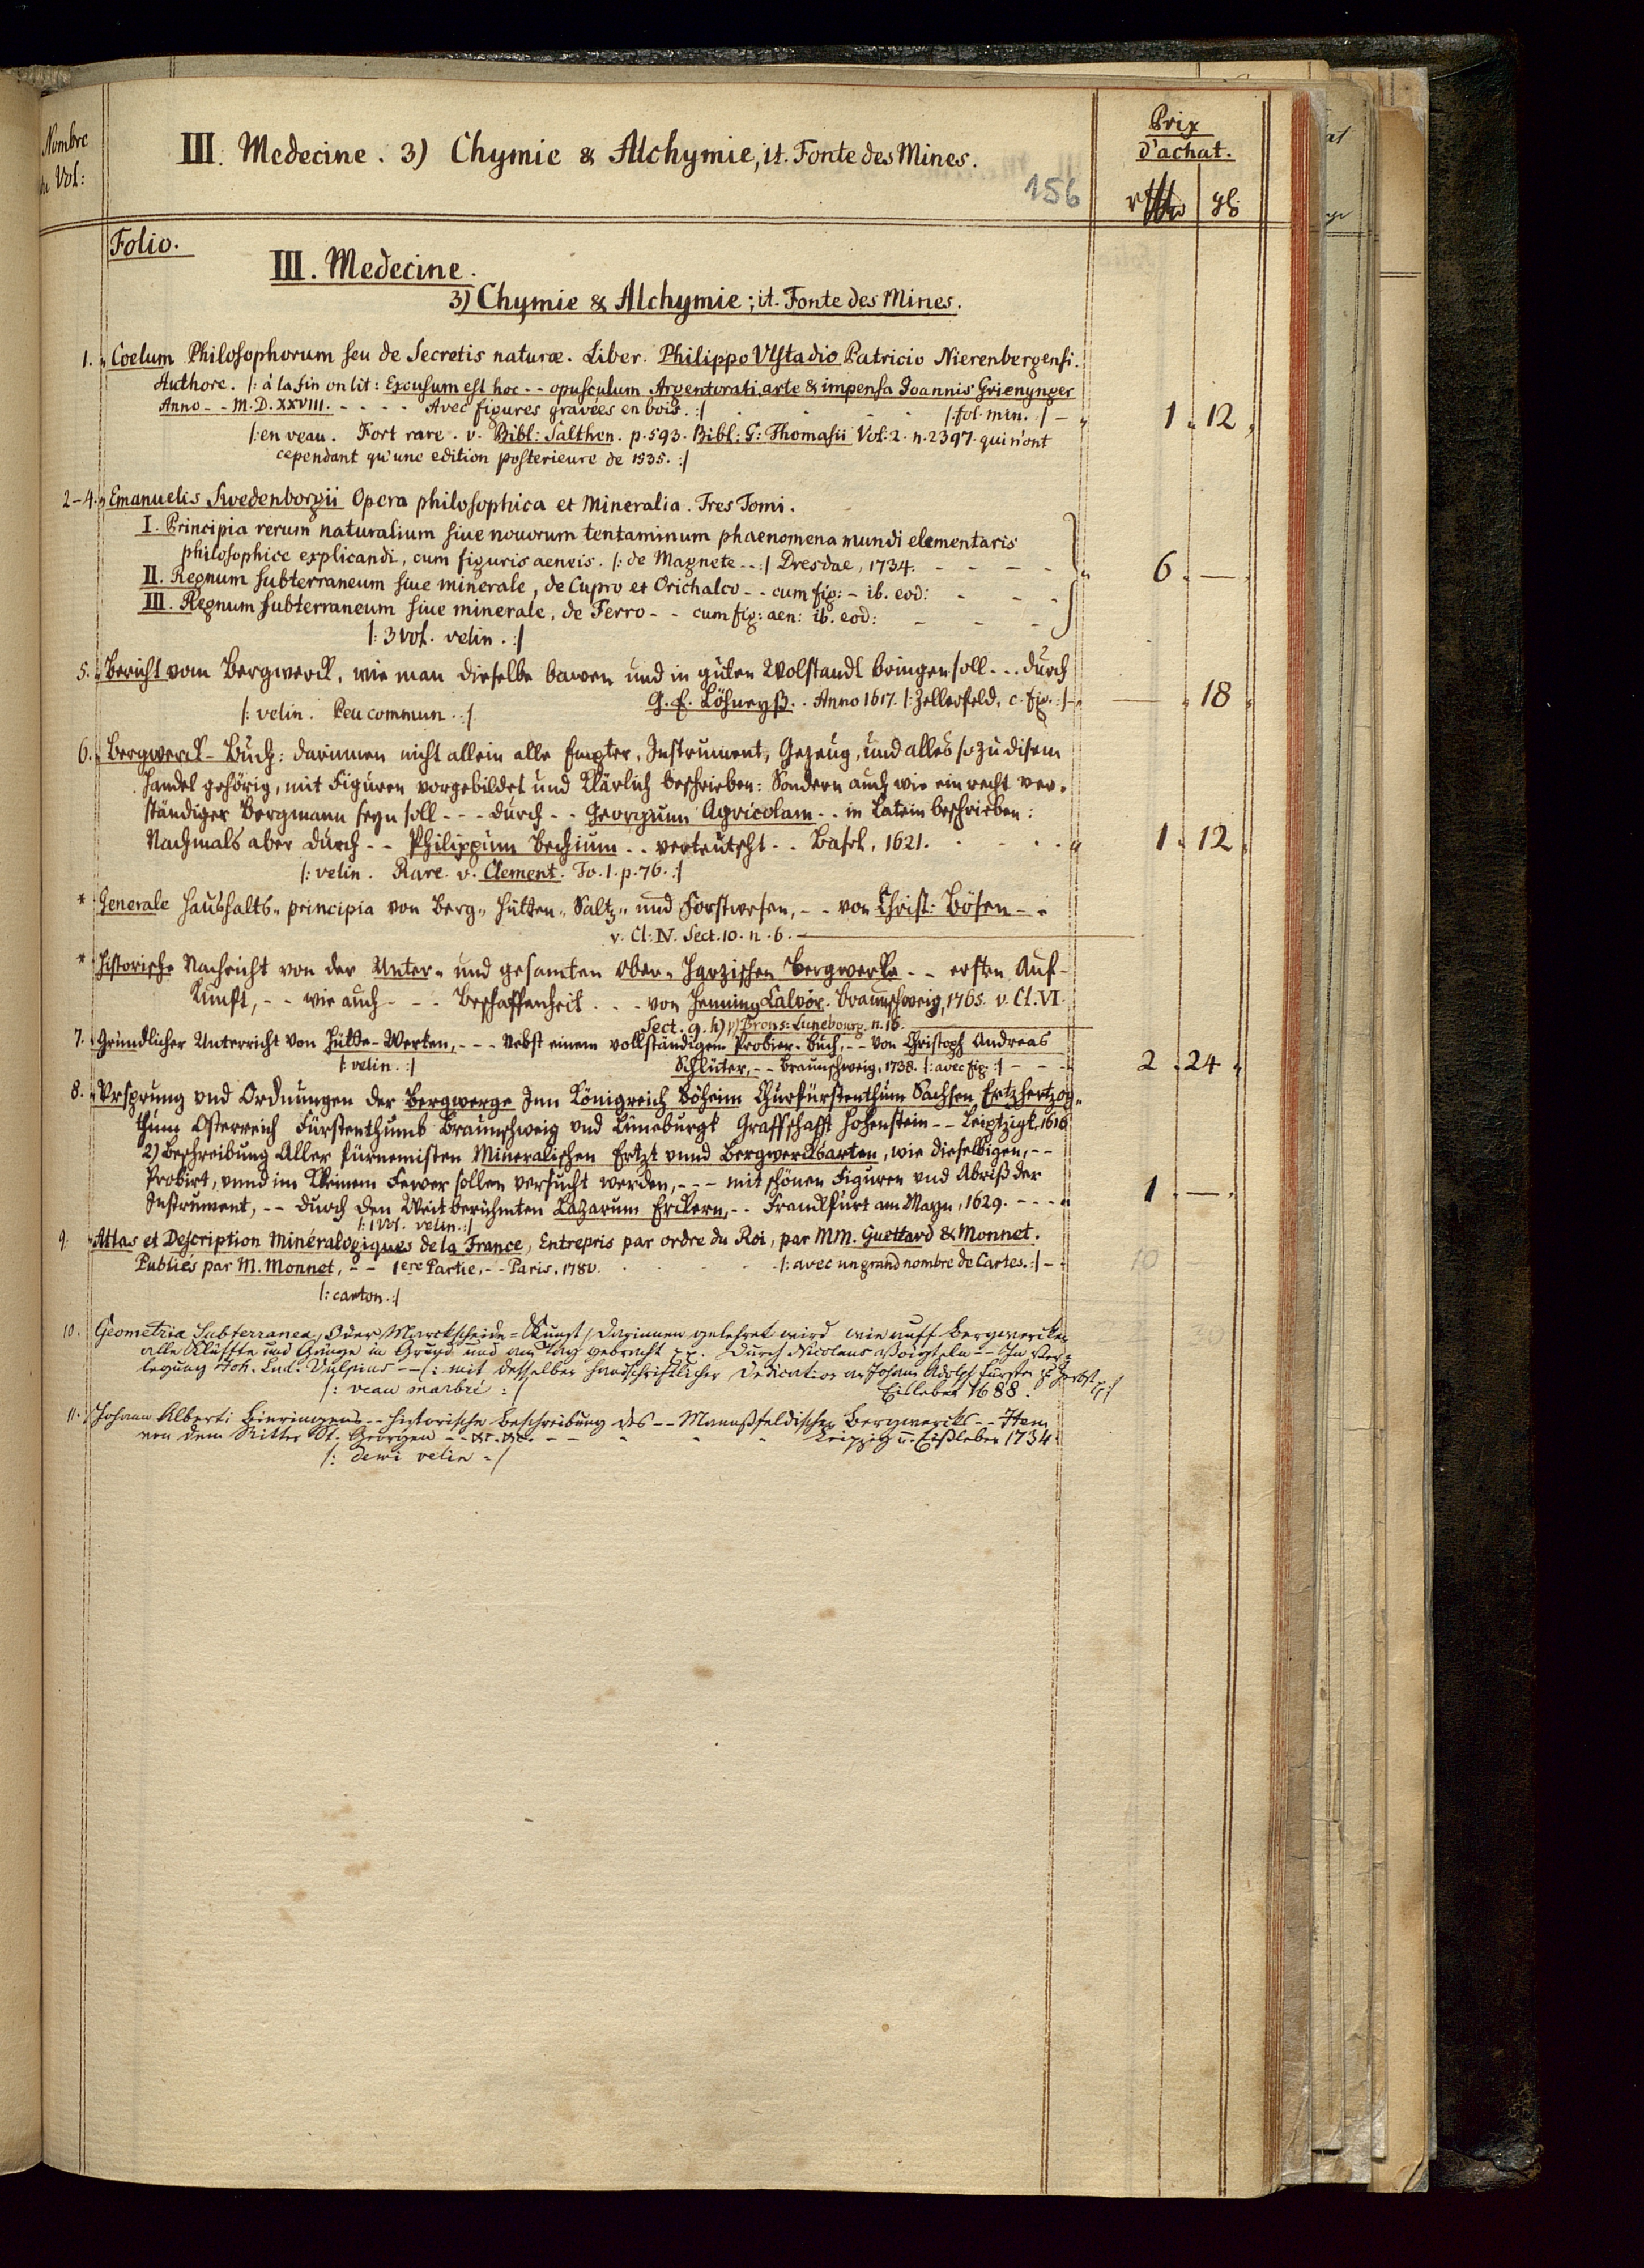 Nombre
du Vol:
III. Medecine. 3) Chymie & Alchymie, it. Fonte des Mines.
156
Prix
d'achat.
Folio.
III. Medecine.
3) Chymie & Alchymie; it. Fonte des Mines.
1. Coelum Philosophorum seu de Secretis naturæ. Liber. Philippo Vlstadio Patricio Nierenbergensi.
Authore. /: à la fin on lit: Excusum est hoc - - opusculum Argentorati arte & impensa Joannis Grienynger
Anno - - M.D.XXVIII. - - - - Avec figures gravées en bois. :/ /: fol. min. :/ - 1 . 12
/: en veau. Fort rare. v. Bibl: Salthen. p. 593. Bibl: G: Thomasii Vol: 2. n. 2397. qui n'ont
cependant qu'une edition posterieure de 1535. :/
2-4. Emanuelis Swedenborgii Opera philosophica et Mineralia. Tres Tomi.
I. Principia rerum naturalium siue nouorum tentaminum phaenomena mundi elementaris
philosophice explicandi, cum figuris aeneis. /: de Magnete - - :/ Dresdae, 1734. - - - - 6 . —
II. Regnum subterraneum siue minerale, de Cupro et Orichalco - - cum fig: - ib. eod: - - -
III. Regnum subterraneum siue minerale, de Ferro - - cum fig: aen: ib. eod: - - -
/: 3 Vol. velin. :/
5. Bericht vom Bergwerck, wie man dieselbe bawen und in guten Wolstandt bringen soll - - . durch
G. E. Löhneyß. . Anno 1617. /: Zellerfeld, c. fig. :/ — . 18
/: velin. Peu commun. :/
6. Bergwerck-Buch: darinnen nicht allein alle Empter, Instrument, Gezeug, und alles so zu disem
Handel gehörig, mit Figuren vorgebildet und klärlich beschrieben: Sondern auch wie ein recht ver-
ständiger Bergmann seyn soll - - - durch - - Georgium Agricolam - - in Latein beschrieben:
Nachmals aber durch - - Philippum Bechium - - verteutscht - - Basel, 1621. 1 . 12
/: velin. Rare. v. Clement. To. 1. p. 76. :/
* Generale Haushalts-principia von Berg- Hütten- Saltz- und Forstwesen, - - von Christ: Bösen - -
v. Cl: IV. Sect. 10. n. 6.
* Historische Nachricht von der Unter- und gesamten Ober-Harzischen Bergwerke - - ersten Auf-
kunft, - - wie auch - - - Beschaffenheit - - - von Henning Calvör. Braunschweig, 1765. v. Cl. VI.
Sect. 9. h) γ) Brons: Lunebourg n. 15.
7. Gründlicher Unterricht von Hütte-Werken, - - - Nebst einem vollständigen Probier-Buch, - - von Christoph Andreas
/: velin. :/ Schlüter, - - Braunschweig, 1738. /: avec fig. :/ - - - 2 . 24
8. Vrsprung vnd Ordnungen der Bergwerge Inn Königreich Böheim Churfürstenthum Sachsen, Ertzhertzog-
thum Osterreich Fürstenthumb Braunschweig vnd Lüneburgk Graffschafft Hohenstein - - Leiptzigk, 1616
2) Beschreibung Aller fürnemisten Mineralischen Ertzt vnnd Bergwercksarten, wie dieselbigen, - -
Probirt, vnnd im kleinen Fewer sollen versucht werden, - - - mit schönen Figuren vnd Abriß der
Instrument, - - durch den Weitberühmten Lazarum Erckern, - - Franckfurt am Mayn, 1629. - - - 1 . —
/: 1 Vol. velin. :/
9. Atlas et Description minéralogiques de la France, Entrepris par ordre du Roi, par MM. Guettard & Monnet.
Publiés par M. Monnet, - - 1ere Partie, - - Paris, 1780. /: avec un grand nombre de Cartes. :/ - 10 —
/: carton. :/
10. Geometria Subterranea, Oder Marckscheide-Kunst / Darinnen gelehret wird wie auff Bergwercken
alle Klüffte und Gänge in Grund und am Tag gebracht pp. Durch Nicolaus Voigteln - - In Ver-
legung Joh. Lud. Vulpius - - /: mit desselben handschriftlicher Dedication an Johann Adolph Fürsten zu Zerbst pp :/
/: veau marbré :/ Eisleben 1688.
11. Johann Alberti Bieringens - - historische Beschreibung des - - Mannßfeldischen Bergwercks - - Item
von dem Ritter St. Georgen - - &c. &c. - - Leipzig u. Eißleben 1734
/: demi velin :/